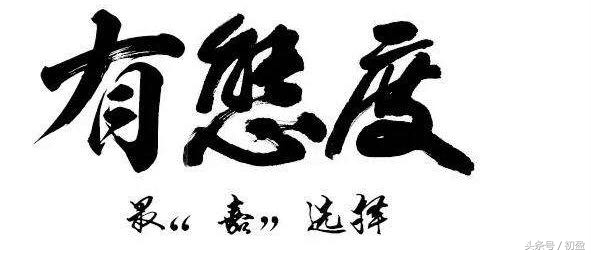 有態度
最“嘉”选择
头条号/初盈